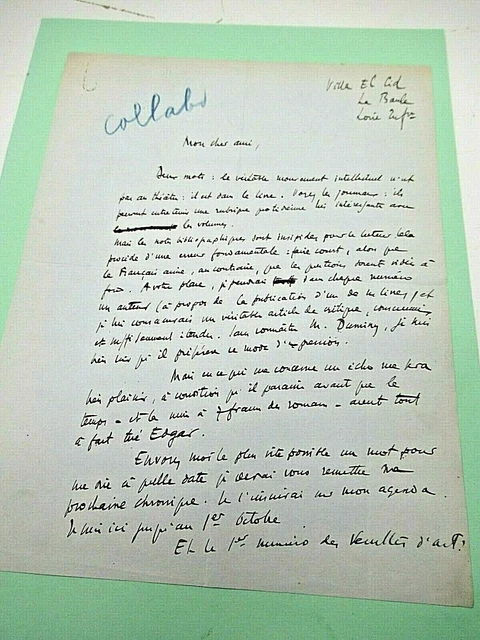 Villa El Cid
La Baule
Loire Infre
collabo
Mon cher ami,
Deux mots : le véritable mouvement intellectuel n'est
pas au théâtre : il est dans le livre. Voyez les journaux : ils
peuvent entretenir une rubrique quotidienne très intéressante avec
les volumes.
Mais les notes bibliographiques sont insipides pour le lecteur. Cela
procède d'une erreur fondamentale : faire court, alors que
le Français aime, au contraire, que les questions soient vidées à
fond. A votre place, je prendrais dans chaque numéro
un auteur (à propos de la publication d'un de ses livres) et
je lui consacrerais un véritable article de critique,
et suffisamment étendu. Sans connaître M. Duminy, je suis
très sûr qu'il préfèrera ce mode d'expression.
Mais en ce qui me concerne un écho me fera
très plaisir, à condition qu'il paraisse avant que le
temps - et la mise à 7 francs des romans - aient tout
à fait tué Edgar.
Envoyez moi le plus vite possible un mot pour
me dire à quelle date je devrai vous remettre ma
prochaine chronique. Je l'inscrirai sur mon agenda.
Je suis ici jusqu'au 1er Octobre
Et le 1er numéro des Feuilles d'art ?